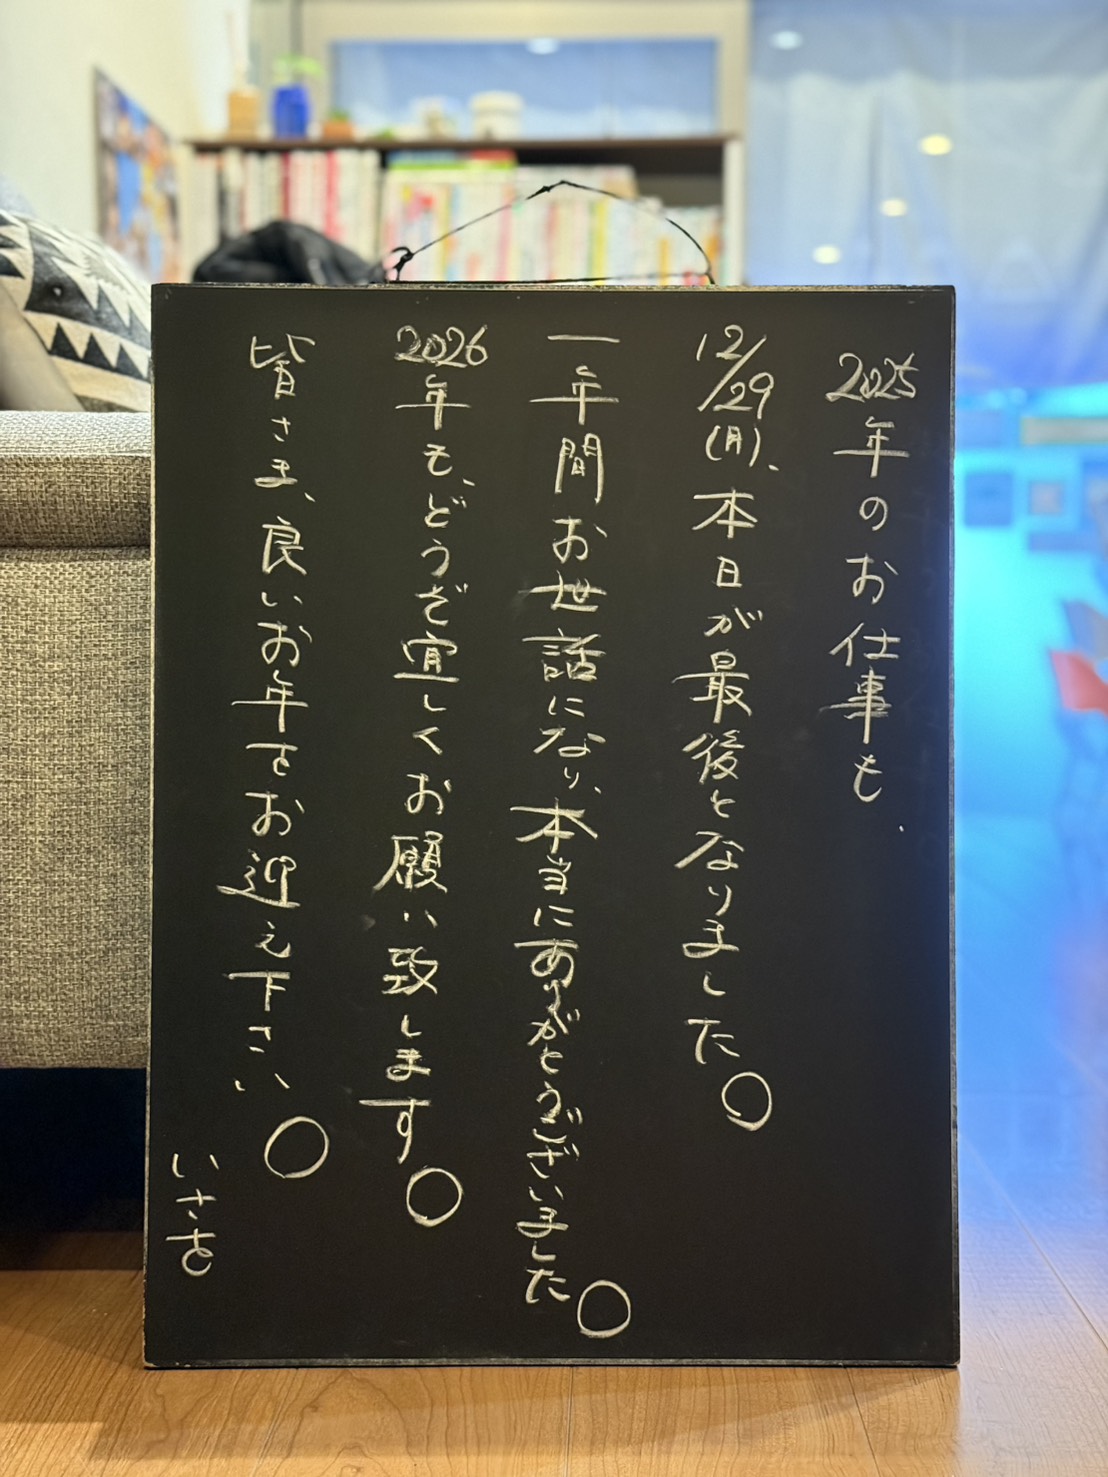 2025年のお仕事も
12/29(月)、本日が最後となりました。
一年間お世話になり、本当にありがとうございました。
2026年も、どうぞ宜しくお願い致します。
皆さま、良いお年をお迎え下さい。
いさを